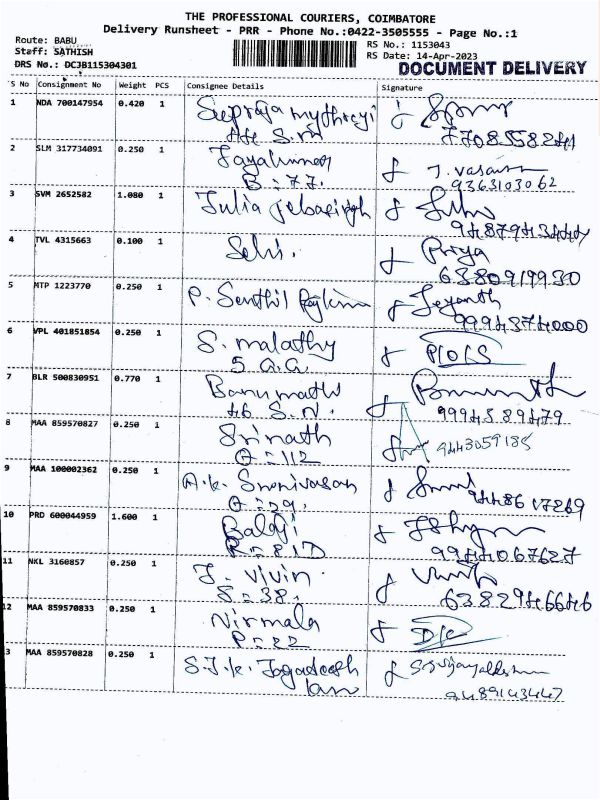 THE PROFESSIONAL COURIERS, COIMBATORE
Delivery Runsheet - PRR - Phone No.:0422-3505555 - Page No.:1
Route: BABU
RS No.: 1153043
Staff: SATHISH
RS Date: 14-Apr-2023
DRS No.: DCJB115304301
DOCUMENT DELIVERY
S No Consignment No Weight PCS Consignee Details Signature
1 NDA 700147954 0.420 1
S.N
7708558241
2 SLM 317734091 0.250 1 Jayakumar J. Vasan
B:77. 9363103062
3 SVM 2652582 1.080 1 Julia
4 TVL 4315663 0.100 1 Selvi. Priya
6380919930
5 MTP 1223770 0.250 1 P. Senthil Jeyanth
9994374000
6 VPL 401851854 0.250 1 S. malathy
5 a.a.
7 BLR 500830951 0.770 1 Banumathi
46 S.N. 9994589479
8 MAA 859570827 0.250 1 Srinath
G:112 9443059185
9 MAA 100002362 0.250 1 A.K. Srinivasan
G:29. 9448617269
10 PRD 600044959 1.600 1 Balaji
9944067627
11 NKL 3160857 0.250 1 J. vivin
S:38. 6382946646
12 MAA 859570833 0.250 1 Nirmala
P:22
3 MAA 859570828 0.250 1 S.J.K.
9489143447